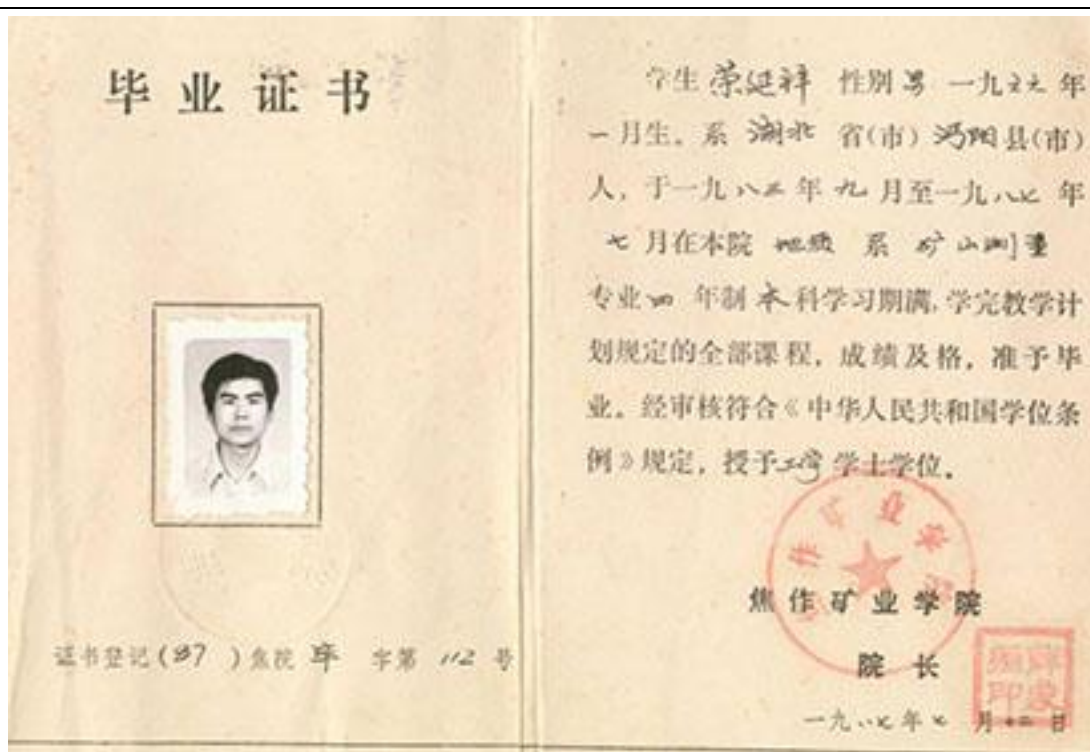 毕业证书
证书登记(87)焦院毕字第112号
学生 荣延祥 性别 男 一九六六年
一月生。系 湖北 省(市) 沔阳县(市)
人, 于一九八三年 九 月至一九八七 年
七 月在本院 地质 系 矿山测量
专业 四 年制 本科学习期满, 学完教学计
划规定的全部课程, 成绩及格, 准予毕
业。经审核符合《中华人民共和国学位条
例》规定, 授予工学 学士学位。
焦作矿业学院
焦作矿业学院
院 长
一九八七年七月十二日